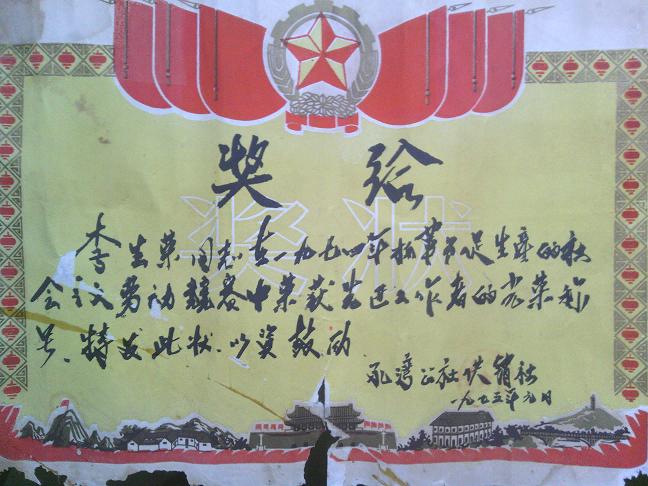 奖给
奖状
李生荣同志在一九七四年抓革命促生产的社
会主义劳动竞赛中荣获先进工作者的光荣称
号、特发此状.以资鼓励
湾公社供销社
一九七五年元月